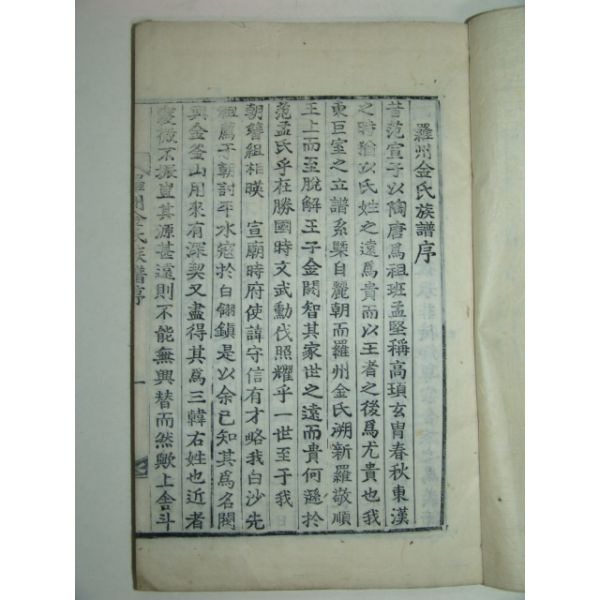 羅州金氏族譜序
昔范宣子以陶唐爲祖班孟堅稱高頊玄冑春秋東漢
之時猶以氏姓之遠爲貴而以王者之後爲尤貴也我
東巨室之立譜系槩自麗朝而羅州金氏溯新羅敬順
王上而至脫解王子金閼智其家世之遠而貴何遜於
范孟氏乎在勝國時文武勳伐照耀乎一世至于我
朝簪組相暎 宣廟時府使諱守信有才略我白沙先
祖薦于朝討平水寇於白翎鎭是以余已知其爲名閥
與金釜山用來有深契又盡得其爲三韓右姓也近者
寖微不振豈其源甚遠則不能無興替而然歟上舍斗
羅州金氏族譜序
一